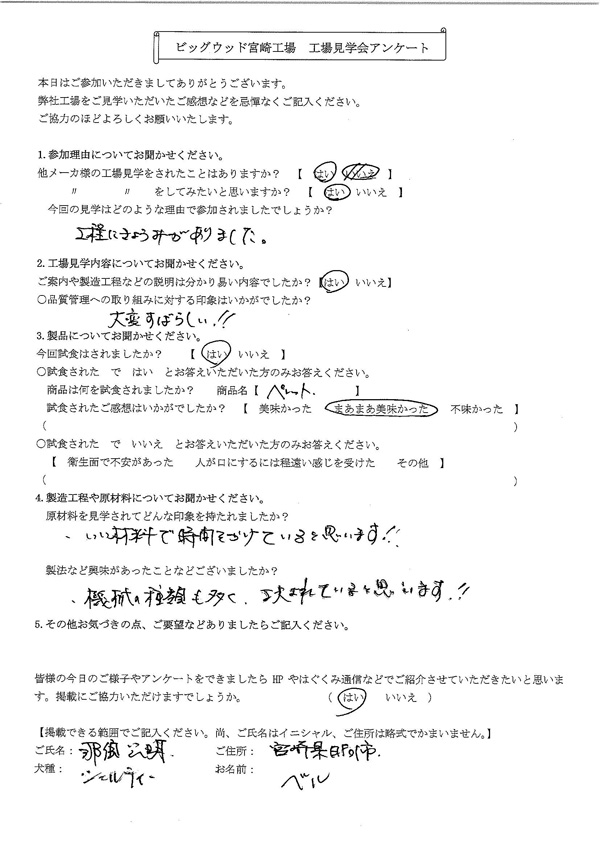 ビッグウッド宮崎工場　工場見学会アンケート
本日はご参加いただきましてありがとうございます。
弊社工場をご見学いただいたご感想などを忌憚なくご記入ください。
ご協力のほどよろしくお願いいたします。
1.参加理由についてお聞かせください。
他メーカ様の工場見学をされたことはありますか？　【　はい　いいえ　】
〃　　　〃　　をしてみたいと思いますか？　【　はい　いいえ　】
今回の見学はどのような理由で参加されましたでしょうか？
工程にきょうみがありました。
2.工場見学内容についてお聞かせください。
ご案内や製造工程などの説明は分かり易い内容でしたか？【はい　いいえ】
〇品質管理への取り組みに対する印象はいかがでしたか？
大変すばらしい!!
3.製品についてお聞かせください。
今回試食はされましたか？　　【　はい　いいえ　】
〇試食された　で　はい　とお答えいただいた方のみお答えください。
商品は何を試食されましたか？　　商品名【　ペレット.　】
試食されたご感想はいかがでしたか？　【　美味かった　まあまあ美味かった　不味かった　】
（　　　）
〇試食された　で　いいえ　とお答えいただいた方のみお答えください。
【　衛生面で不安があった　　人が口にするには程遠い感じを受けた　　その他　】
（　　　）
4.製造工程や原材料についてお聞かせください。
原材料を見学されてどんな印象を持たれましたか？
、いい材料で時間をかけていると思います!!
製法など興味があったことなどございましたか？
、機械の種類も多く、されていると思います!!
5.その他お気づきの点、ご要望などありましたらご記入ください。
皆様の今日のご様子やアンケートをできましたら HP やはぐくみ通信などでご紹介させていただきたいと思いま
す。掲載にご協力いただけますでしょうか。　　（　はい　いいえ　）
【掲載できる範囲でご記入ください。尚、ご氏名はイニシャル、ご住所は略式でかまいません。】
ご氏名：　ご住所：宮崎県市
犬種：シェルティー　お名前：ベル